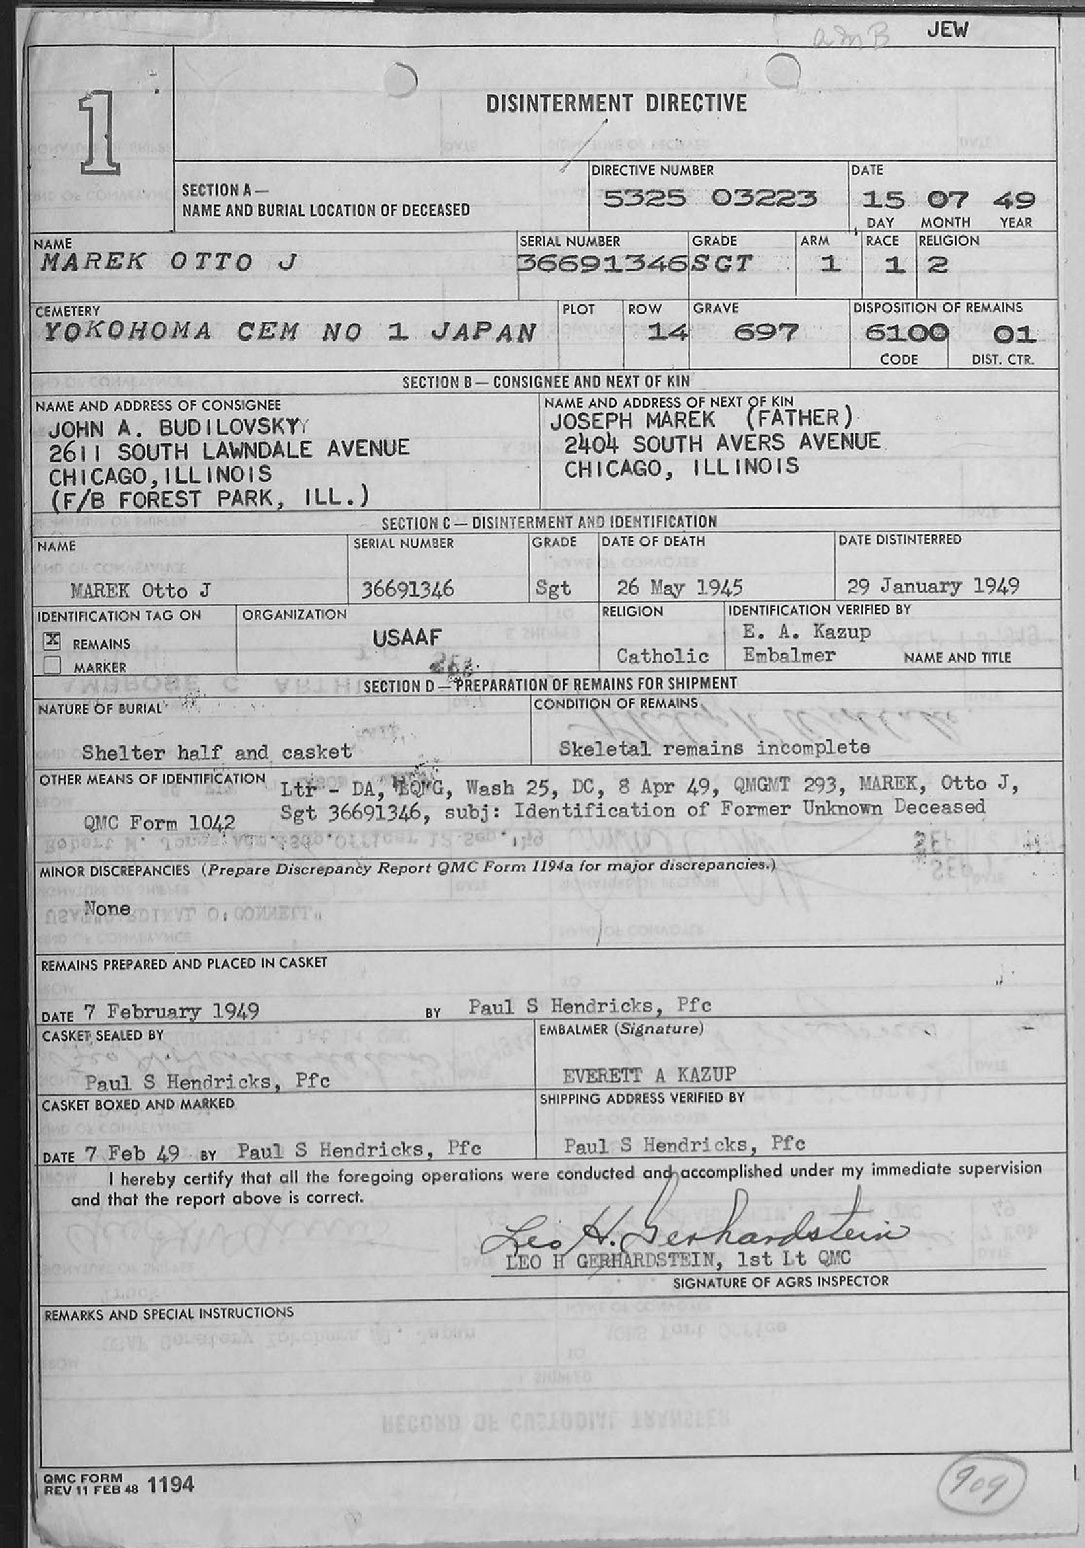 JEW
1
DISINTERMENT DIRECTIVE
SECTION A—
NAME AND BURIAL LOCATION OF DECEASED
DIRECTIVE NUMBER
5325 03223
DATE
15 07 49
DAY MONTH YEAR
NAME
MAREK OTTO J
SERIAL NUMBER
36691346
GRADE
SGT
ARM
1
RACE
1
RELIGION
2
CEMETERY
YOKOHOMA CEM NO 1 JAPAN
PLOT
ROW
14
GRAVE
697
DISPOSITION OF REMAINS
6100 01
CODE DIST. CTR.
SECTION B — CONSIGNEE AND NEXT OF KIN
NAME AND ADDRESS OF CONSIGNEE
JOHN A. BUDILOVSKY
2611 SOUTH LAWNDALE AVENUE
CHICAGO, ILLINOIS
(F/B FOREST PARK, ILL.)
NAME AND ADDRESS OF NEXT OF KIN
JOSEPH MAREK (FATHER)
2404 SOUTH AVERS AVENUE
CHICAGO, ILLINOIS
SECTION C — DISINTERMENT AND IDENTIFICATION
NAME
MAREK Otto J
SERIAL NUMBER
36691346
GRADE
Sgt
DATE OF DEATH
26 May 1945
DATE DISTINTERRED
29 January 1949
IDENTIFICATION TAG ON
X REMAINS
MARKER
ORGANIZATION
USAAF
RELIGION
Catholic
IDENTIFICATION VERIFIED BY
E. A. Kazup
Embalmer NAME AND TITLE
SECTION D — PREPARATION OF REMAINS FOR SHIPMENT
NATURE OF BURIAL
Shelter half and casket
CONDITION OF REMAINS
Skeletal remains incomplete
OTHER MEANS OF IDENTIFICATION
QMC Form 1042
Ltr - DA, OQMG, Wash 25, DC, 8 Apr 49, QMGMT 293, MAREK, Otto J,
Sgt 36691346, subj: Identification of Former Unknown Deceased
MINOR DISCREPANCIES (Prepare Discrepancy Report QMC Form 1194a for major discrepancies.)
None
REMAINS PREPARED AND PLACED IN CASKET
DATE 7 February 1949 BY Paul S Hendricks, Pfc
CASKET SEALED BY
Paul S Hendricks, Pfc
EMBALMER (Signature)
EVERETT A KAZUP
CASKET BOXED AND MARKED
DATE 7 Feb 49 BY Paul S Hendricks, Pfc
SHIPPING ADDRESS VERIFIED BY
Paul S Hendricks, Pfc
I hereby certify that all the foregoing operations were conducted and accomplished under my immediate supervision
and that the report above is correct.
Leo H. Gerhardstein
LEO H GERHARDSTEIN, 1st Lt QMC
SIGNATURE OF AGRS INSPECTOR
REMARKS AND SPECIAL INSTRUCTIONS
QMC FORM
REV 11 FEB 48 1194
909